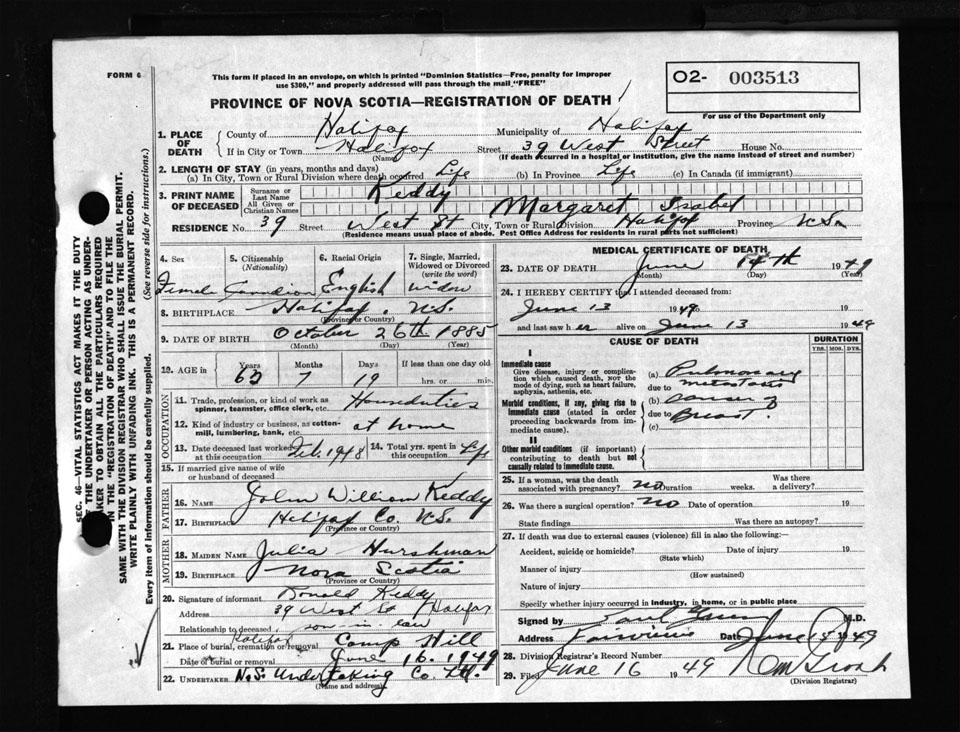 FORM 6
This form if placed in an envelope, on which is printed "Dominion Statistics—Free, penalty for improper
use $300," and properly addressed will pass through the mail "FREE"
O2- 003513
For use of the Department only
PROVINCE OF NOVA SCOTIA—REGISTRATION OF DEATH
1. PLACE OF DEATH
County of Halifax Municipality of Halifax
If in City or Town Halifax Street 39 West Street House No.
(Name) (If death occurred in a hospital or institution, give the name instead of street and number)
2. LENGTH OF STAY (in years, months and days)
(a) In City, Town or Rural Division where death occurred Life (b) In Province Life (c) In Canada (if immigrant)
3. PRINT NAME OF DECEASED
Surname or Last Name Keddy
All Given or Christian Names Margaret Isabel
RESIDENCE No. 39 Street West St City, Town or Rural Division Halifax Province N.S.
(Residence means usual place of abode. Post Office Address for residents in rural parts not sufficient)
4. Sex 5. Citizenship (Nationality) 6. Racial Origin 7. Single, Married, Widowed or Divorced (write the word)
Female Canadian English widow
8. BIRTHPLACE Halifax, N.S.
(Province or Country)
9. DATE OF BIRTH October 26th 1885
(Month) (Day) (Year)
10. AGE in Years Months Days If less than one day old
63 7 19 hrs. or min.
OCCUPATION
11. Trade, profession, or kind of work as spinner, teamster, office clerk, etc. Houseduties
12. Kind of industry or business, as cotton-mill, lumbering, bank, etc. at home
13. Date deceased last worked at this occupation Feb. 1948 14. Total yrs. spent in this occupation Life
15. If married give name of wife or husband of deceased
FATHER
16. Name John William Keddy
17. Birthplace Halifax Co. N.S.
(Province or Country)
MOTHER
18. MAIDEN NAME Julia Hurshman
19. BIRTHPLACE Nova Scotia
(Province or Country)
20. Signature of informant Donald Keddy
Address 39 West St Halifax
Relationship to deceased son-in-law
21. Place of burial, cremation or removal Halifax Camp Hill
Date of burial or removal June 16. 1949
22. UNDERTAKER N.S. Undertaking Co. Ltd.
(Name and address)
MEDICAL CERTIFICATE OF DEATH
23. DATE OF DEATH June 14th 1949
(Month) (Day) (Year)
24. I HEREBY CERTIFY that I attended deceased from
June 13 1949 to 19
and last saw her alive on June 13 1949
CAUSE OF DEATH DURATION
YRS. MOS. DYS.
I
Immediate cause
Give disease, injury or complication which caused death, not the mode of dying, such as heart failure, asphyxia, asthenia, etc.
(a) Pulmonary
due to metastasis
Morbid conditions, if any, giving rise to immediate cause (stated in order proceeding backwards from immediate cause).
(b) cancer of
due to Breast.
(c)
II
Other morbid conditions (if important) contributing to death but not causally related to immediate cause.
25. If a woman, was the death associated with pregnancy? no Duration weeks. Was there a delivery?
26. Was there a surgical operation? no Date of operation 19
State findings Was there an autopsy?
27. If death was due to external causes (violence) fill in also the following:
Accident, suicide or homicide? Date of injury 19
(State which)
Manner of injury
(How sustained)
Nature of injury
Specify whether injury occurred in industry, in home, or in public place
Signed by M.D.
Address Fairview Date June 1949
28. Division Registrar's Record Number
29. Filed June 16 1949
(Division Registrar)
SEC. 46—VITAL STATISTICS ACT MAKES IT THE DUTY
OF THE UNDERTAKER OR PERSON ACTING AS UNDER-
TAKER TO OBTAIN ALL THE PARTICULARS REQUIRED
IN THE "REGISTRATION OF DEATH" AND TO FILE THE
SAME WITH THE DIVISION REGISTRAR WHO SHALL ISSUE THE BURIAL PERMIT.
WRITE PLAINLY WITH UNFADING INK. THIS IS A PERMANENT RECORD.
Every item of Information should be carefully supplied. (See reverse side for instructions.)